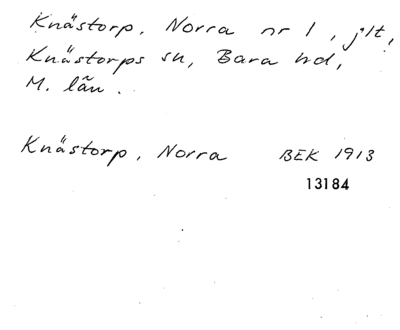 Knästorp, Norra nr 1, jlt,
Knästorps sn, Bara hd,
M. län.
Knästorp, Norra BEK 1913
13184